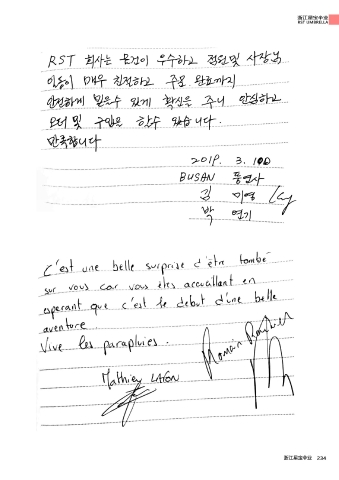 浙江星宝伞业
RST UMBRELLA
RST 회사는 물건이 우수하고 전원 및 사장님
일동이 매우 친절하고 주문 완료까지
안전하게 믿을수 있게 확신을 주니 안심하고
오더 및 구입을 할수 있습니다.
만족합니다
2019. 3. 10
BUSAN
김 미영
박 연기
c'est une belle surprise d'être tombé
sur vous car vous êtes accueillant en
esperant que c'est le debut d'une belle
aventure
Vive les parapluies.
Mathieu LAFON
Romain
浙江星宝伞业 234